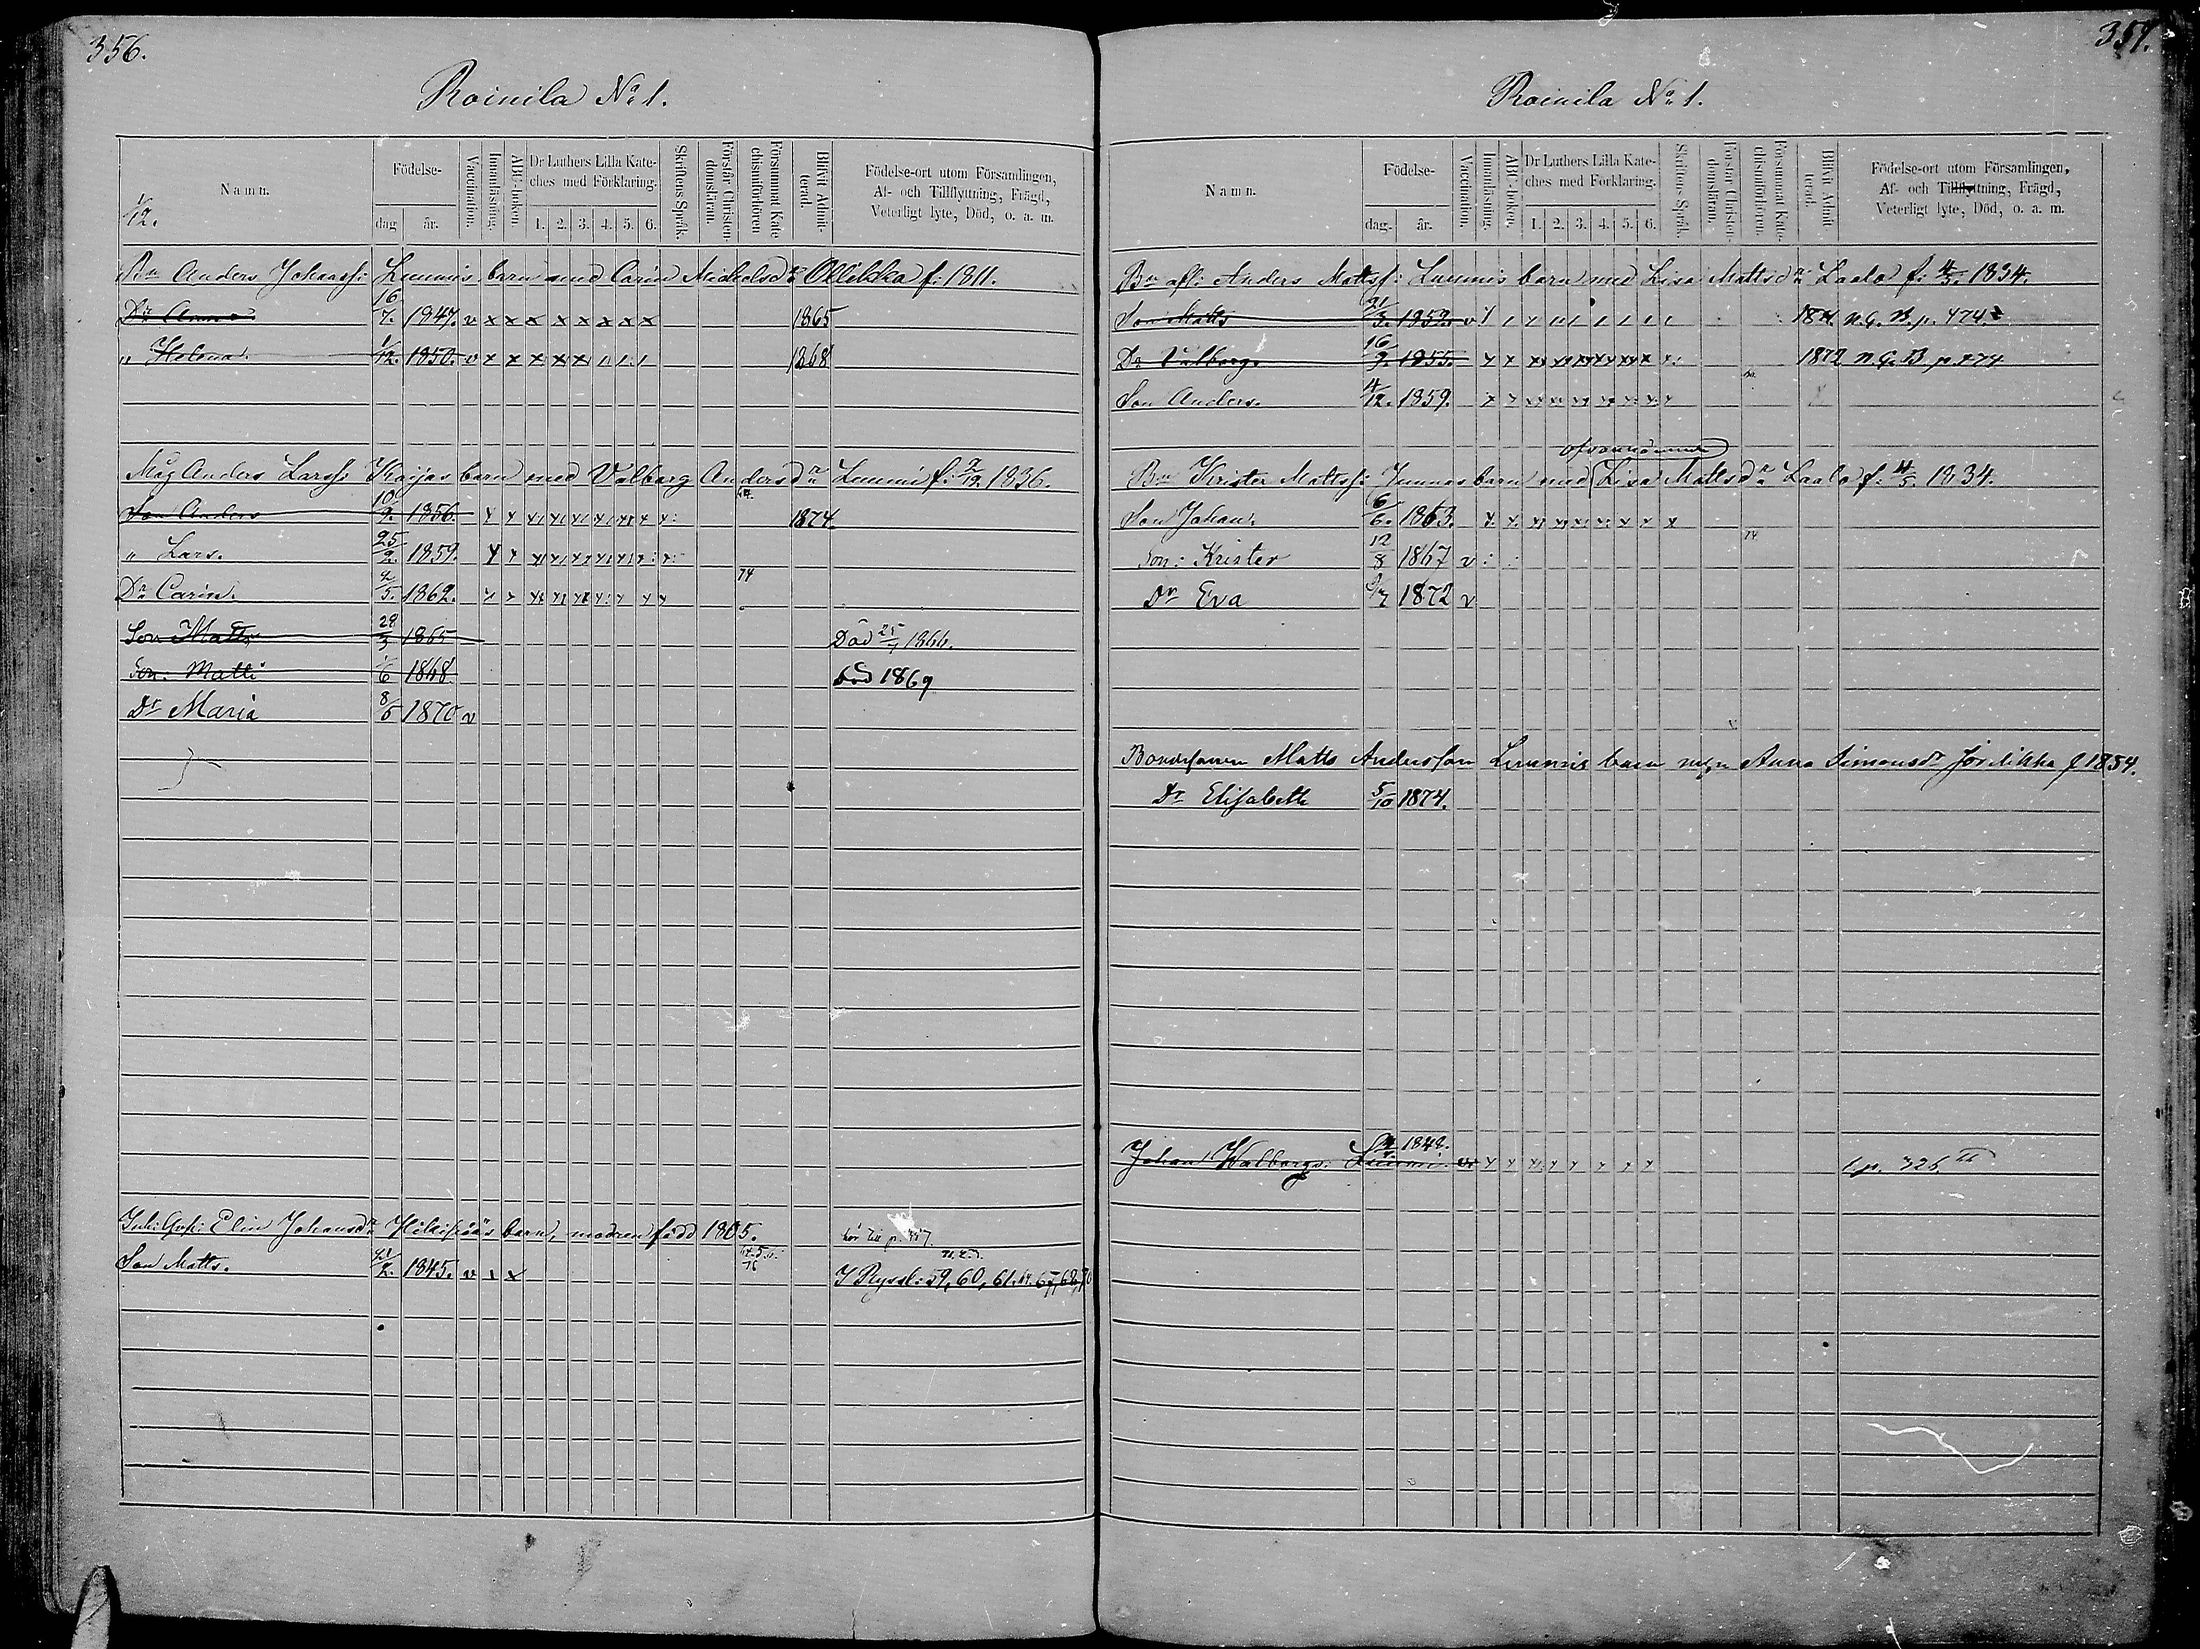 356.
Roinila No 1.
Namn.
Födelse-
dag
år.
Vaccination.
Innanläsning.
ABC-boken.
Dr Luthers Lilla Kate-
ches med Förklaring.
1. 2. 3. 4. 5. 6.
Skriftens Språk.
Förstår Christen-
domsläran.
Försummat Kate-
chismiförhören
Blifvit Admit-
terad.
Födelse-ort utom Församlingen,
Af- och Tillflyttning, Frägd,
Veterligt lyte, Död, o. a. m.
1/12.
Bn Anders Johanss: Lummis barn med Carin Michelsdr Ollikka f: 1811.
Dr Anna. 16/7. 1847. v x x x x x x x x 1865
" Helena. 1/12. 1850. v x x x x x 1868
Måg Anders Larss: Kaijas barn med Valborg Andersdr Lummi f: 2/12. 1836.
Son Anders 10/9. 1856. 1874
" Lars. 25/2. 1859.
Dr Carin. 2/5. 1862. 74
Son Matts 29/3 1865 Död 25/7 1866.
Son: Matti 1/6 1868 död 1869
Dr Maria 8/5 1870 v
Elin Johansdr barn, modren född 1805.
Son Matts. 1845. v x x
I Ryssl: 59, 60, 61.
357.
Roinila No 1.
Namn.
Födelse-
dag.
år.
Vaccination.
Innanläsning.
ABC-boken.
Dr Luthers Lilla Kate-
ches med Förklaring.
1. 2. 3. 4. 5. 6.
Skriftens Språk.
Förstår Christen-
domsläran.
Försummat Kate-
chismiförhören.
Blifvit Admit-
terad.
Födelse-ort utom Församlingen,
Af- och Tillflyttning, Frägd,
Veterligt lyte, Död, o. a. m.
Bn afl: Anders Mattss: Lummis barn med Lisa Mattsdr Laala f: 4/5. 1834.
Son Matts 21/3. 1853. N. G. B. p. 474
Dr Valborg. 16/9. 1855. 1872 N. G. B. p. 474
Son Anders. 4/12. 1859.
ofvannämnda
Bn Krister Mattss: barn med Lisa Mattsdr Laala f: 4/5. 1834.
Son Johan. 6/6. 1863.
Son: Krister 12/8 1867 v 74
Dr Eva 1872 v
Bondesonen Matts Andersson Lummis barn med Anna Simonsdr f 1854.
Dr Elisabeth 5/10 1874.
1848.
Johan Walborgs: Lummi